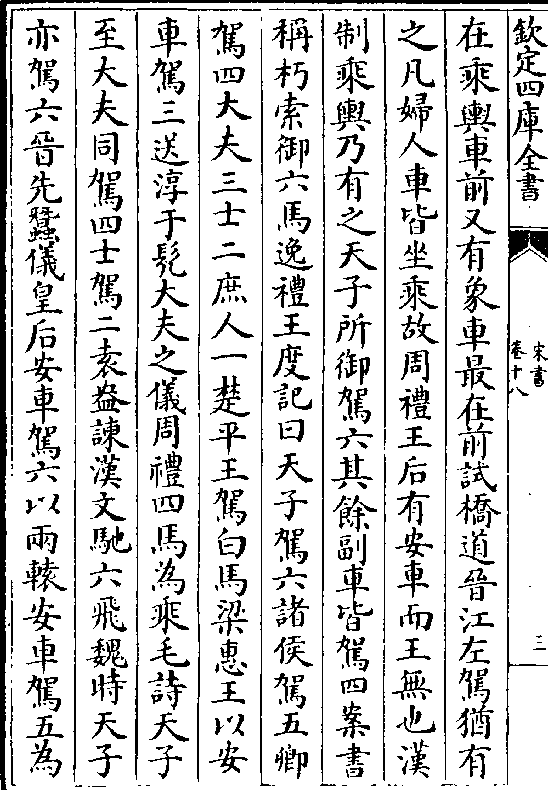 欽定四庫全書
宋書
卷十八
三
在乘輿車前又有象車最在前試橋道晉江左駕猶有
之凡婦人車皆坐乘故周禮王后有安車而王無也漢
制乘輿乃有之天子所御駕六其餘副車皆駕四案書
稱朽索御六馬逸禮王度記曰天子駕六諸侯駕五卿
駕四大夫三士二庶人一楚平王駕白馬梁惠王以安
車駕三送淳于髠大夫之儀周禮四馬為乘毛詩天子
至大夫同駕四士駕二袁盎諫漢文馳六飛魏時天子
亦駕六晉先蠶儀皇后安車駕六以兩轅安車駕五為